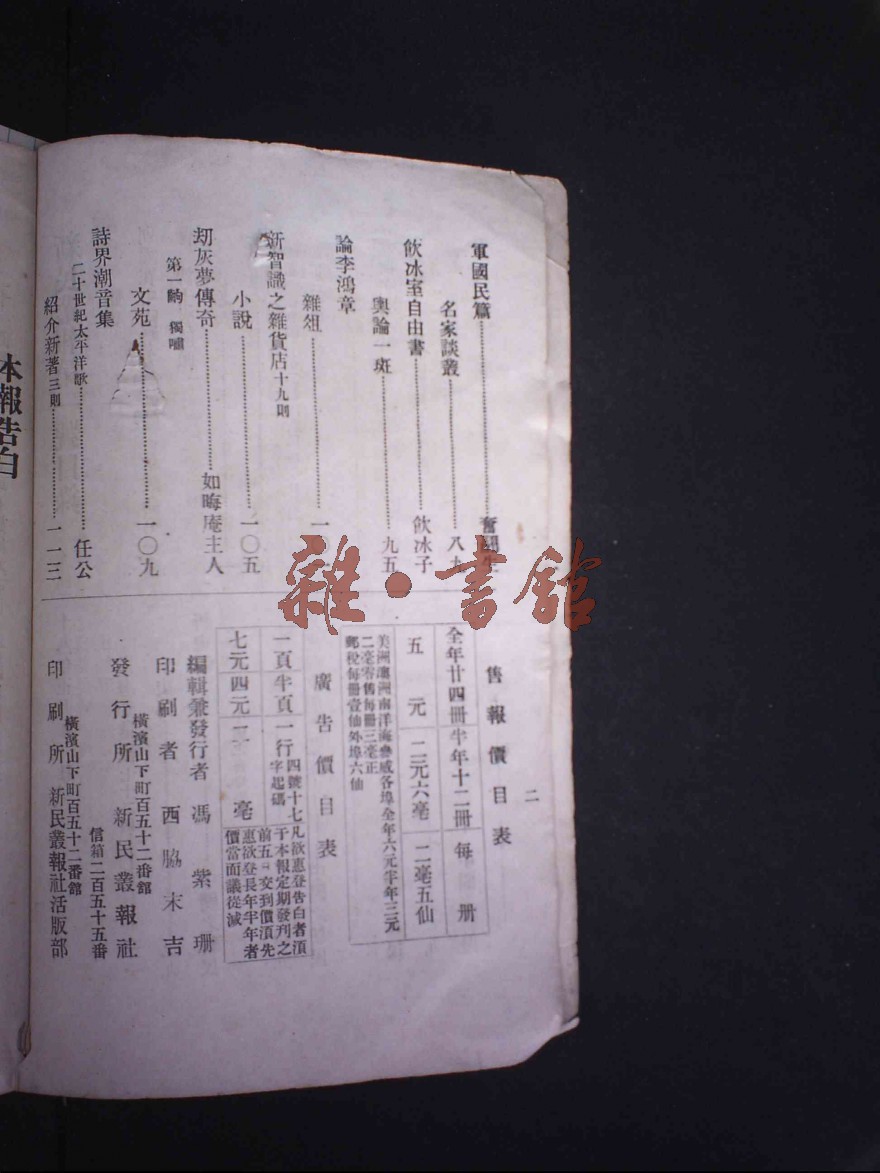 二
軍國民篇
奮
名家談叢
八九
飲冰室自由書
飲冰子
輿論一斑
九五
論李鴻章
雜俎
新智識之雜貨店十九則
小說
一〇五
刼灰夢傳奇
如晦庵主人
第一齣 獨嘯
文苑
一〇九
詩界潮音集
二十世紀太平洋歌
任公
紹介新著三則
一一三
售報價目表
全年廿四冊
半年十二冊
每冊
五元
二元六毫
二毫五仙
美洲澳洲南洋海參威各埠全年六元半年三元
二毫零售每冊三毫正
郵稅每冊壹仙外埠六仙
廣告價目表
一頁
半頁
一行四號十七字起碼
七元
四元
二毫
凡欲惠登告白者湏
于本報定期發刊之
前五日交到價湏先
惠欲登長年半年者
價當面議從減
編輯兼發行者 馮紫珊
印刷者 西脇末吉
橫濱山下町百五十二番館
發行所 新民叢報社
信箱二百五十五番
橫濱山下町百五十二番館
印刷所 新民叢報社活版部
本報告白
雜·書館